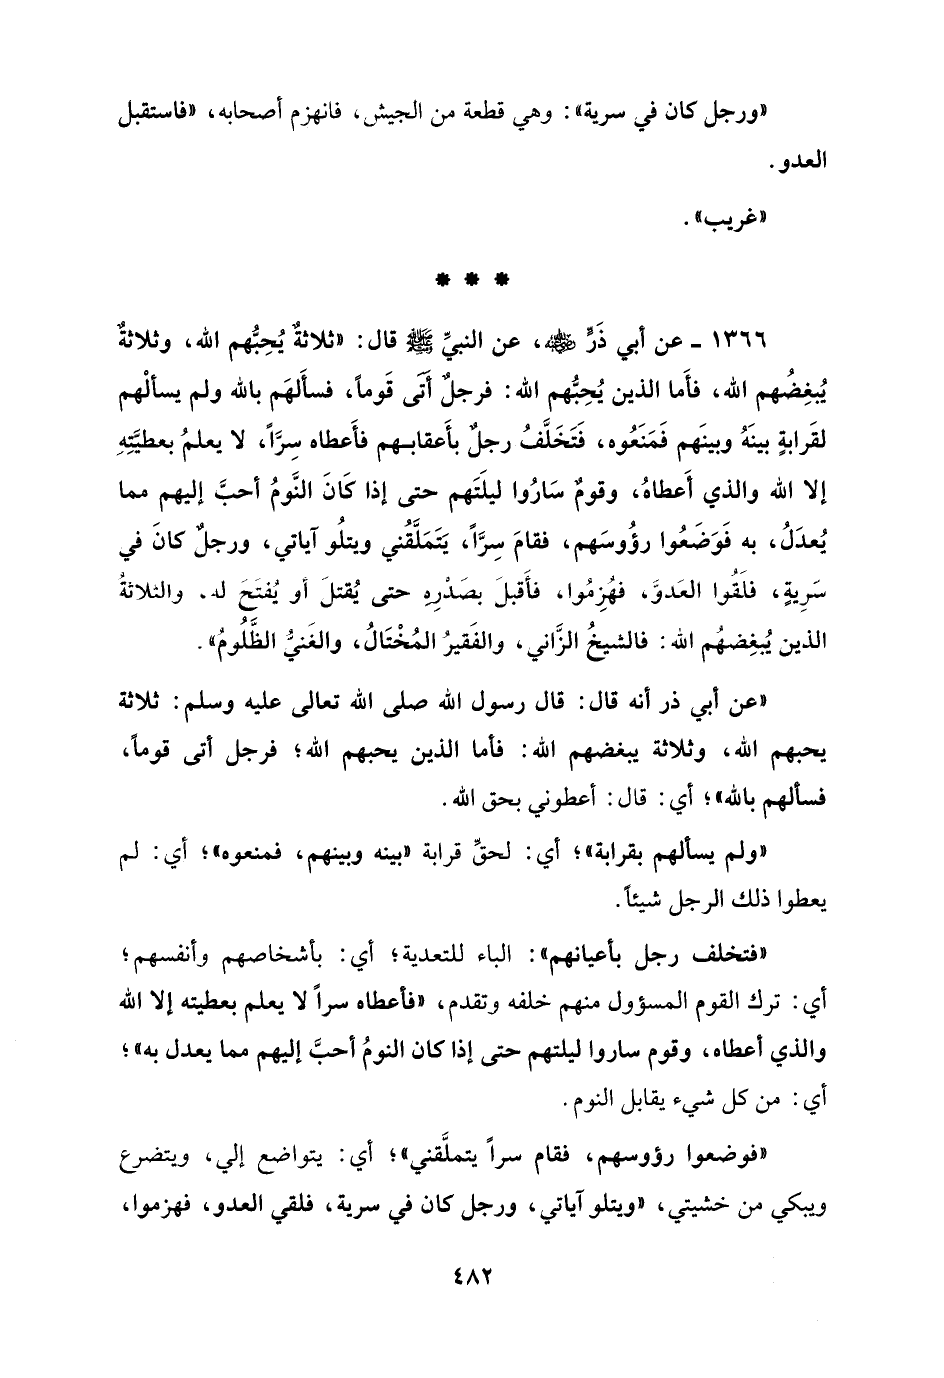 «ورجل كان في سرية»: وهي قطعة من الجيش، فانهزم أصحابه، «فاستقبل
العدو.
«غريب».
* * *
١٣٦٦ - عن أبي ذَرٍّ رضي الله عنه، عن النبيِّ ﷺ قال: «ثلاثةٌ يُحِبُّهم الله، وثلاثةٌ
يُبغِضُهم الله، فأَما الذين يُحِبُّهم الله: فرجلٌ أَتَى قَوماً، فسأَلهَم بالله ولم يسألْهم
لقَرابةٍ بينَهُ وبينَهم فَمَنَعُوه، فَتَخَلَّفُ رجلٌ بأَعقابـهم فأَعطاه سِرَّاً، لا يعلمُ بعطيَّتِهِ
إلا الله والذي أَعطاهُ، وقومٌ سَارُوا ليلَتَهم حتى إذا كَانَ النَّومُ أحبَّ إليهم مما
يُعدَلُ، به فَوَضَعُوا رؤُوسَهم، فقامَ سِرَّاً، يَتَمَلَّقُني ويتلُو آياتي، ورجلٌ كانَ في
سَرِيةٍ، فلَقُوا العَدوَّ، فهُزِمُوا، فأَقبلَ بصَدْرِهِ حتى يُقتلَ أو يُفتَحَ له. والثلاثةُ
الذين يُبغِضهُم الله: فالشيخُ الزَّاني، والفَقيرُ المُخْتَالُ، والغَنيُّ الظَّلُومُ».
«عن أبي ذر أنه قال: قال رسول الله صلى الله تعالى عليه وسلم: ثلاثة
يحبهم الله، وثلاثة يبغضهم الله: فأما الذين يحبهم الله؛ فرجل أتى قوماً،
فسألهم بالله»؛ أي: قال: أعطوني بحق الله.
«ولم يسألهم بقرابة»؛ أي: لحقِّ قرابة «بينه وبينهم، فمنعوه»؛ أي: لم
يعطوا ذلك الرجل شيئاً.
«فتخلف رجل بأعيانهم»: الباء للتعدية؛ أي: بأشخاصهم وأنفسهم؛
أي: ترك القوم المسؤول منهم خلفه وتقدم، «فأعطاه سراً لا يعلم بعطيته إلا الله
والذي أعطاه، وقوم ساروا ليلتهم حتى إذا كان النومُ أحبَّ إليهم مما يعدل به»؛
أي: من كل شيء يقابل النوم.
«فوضعوا رؤوسهم، فقام سراً يتملَّقني»؛ أي: يتواضع إلي، ويتضرع
ويبكي من خشيتي، «ويتلو آياتي، ورجل كان في سرية، فلقي العدو، فهزموا،
٤٨٢